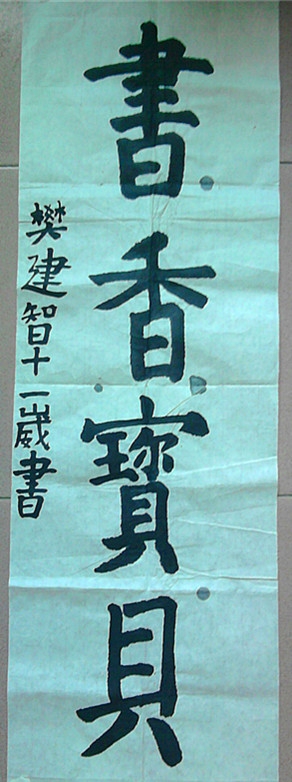 書香寶貝
樊建智十一歲書